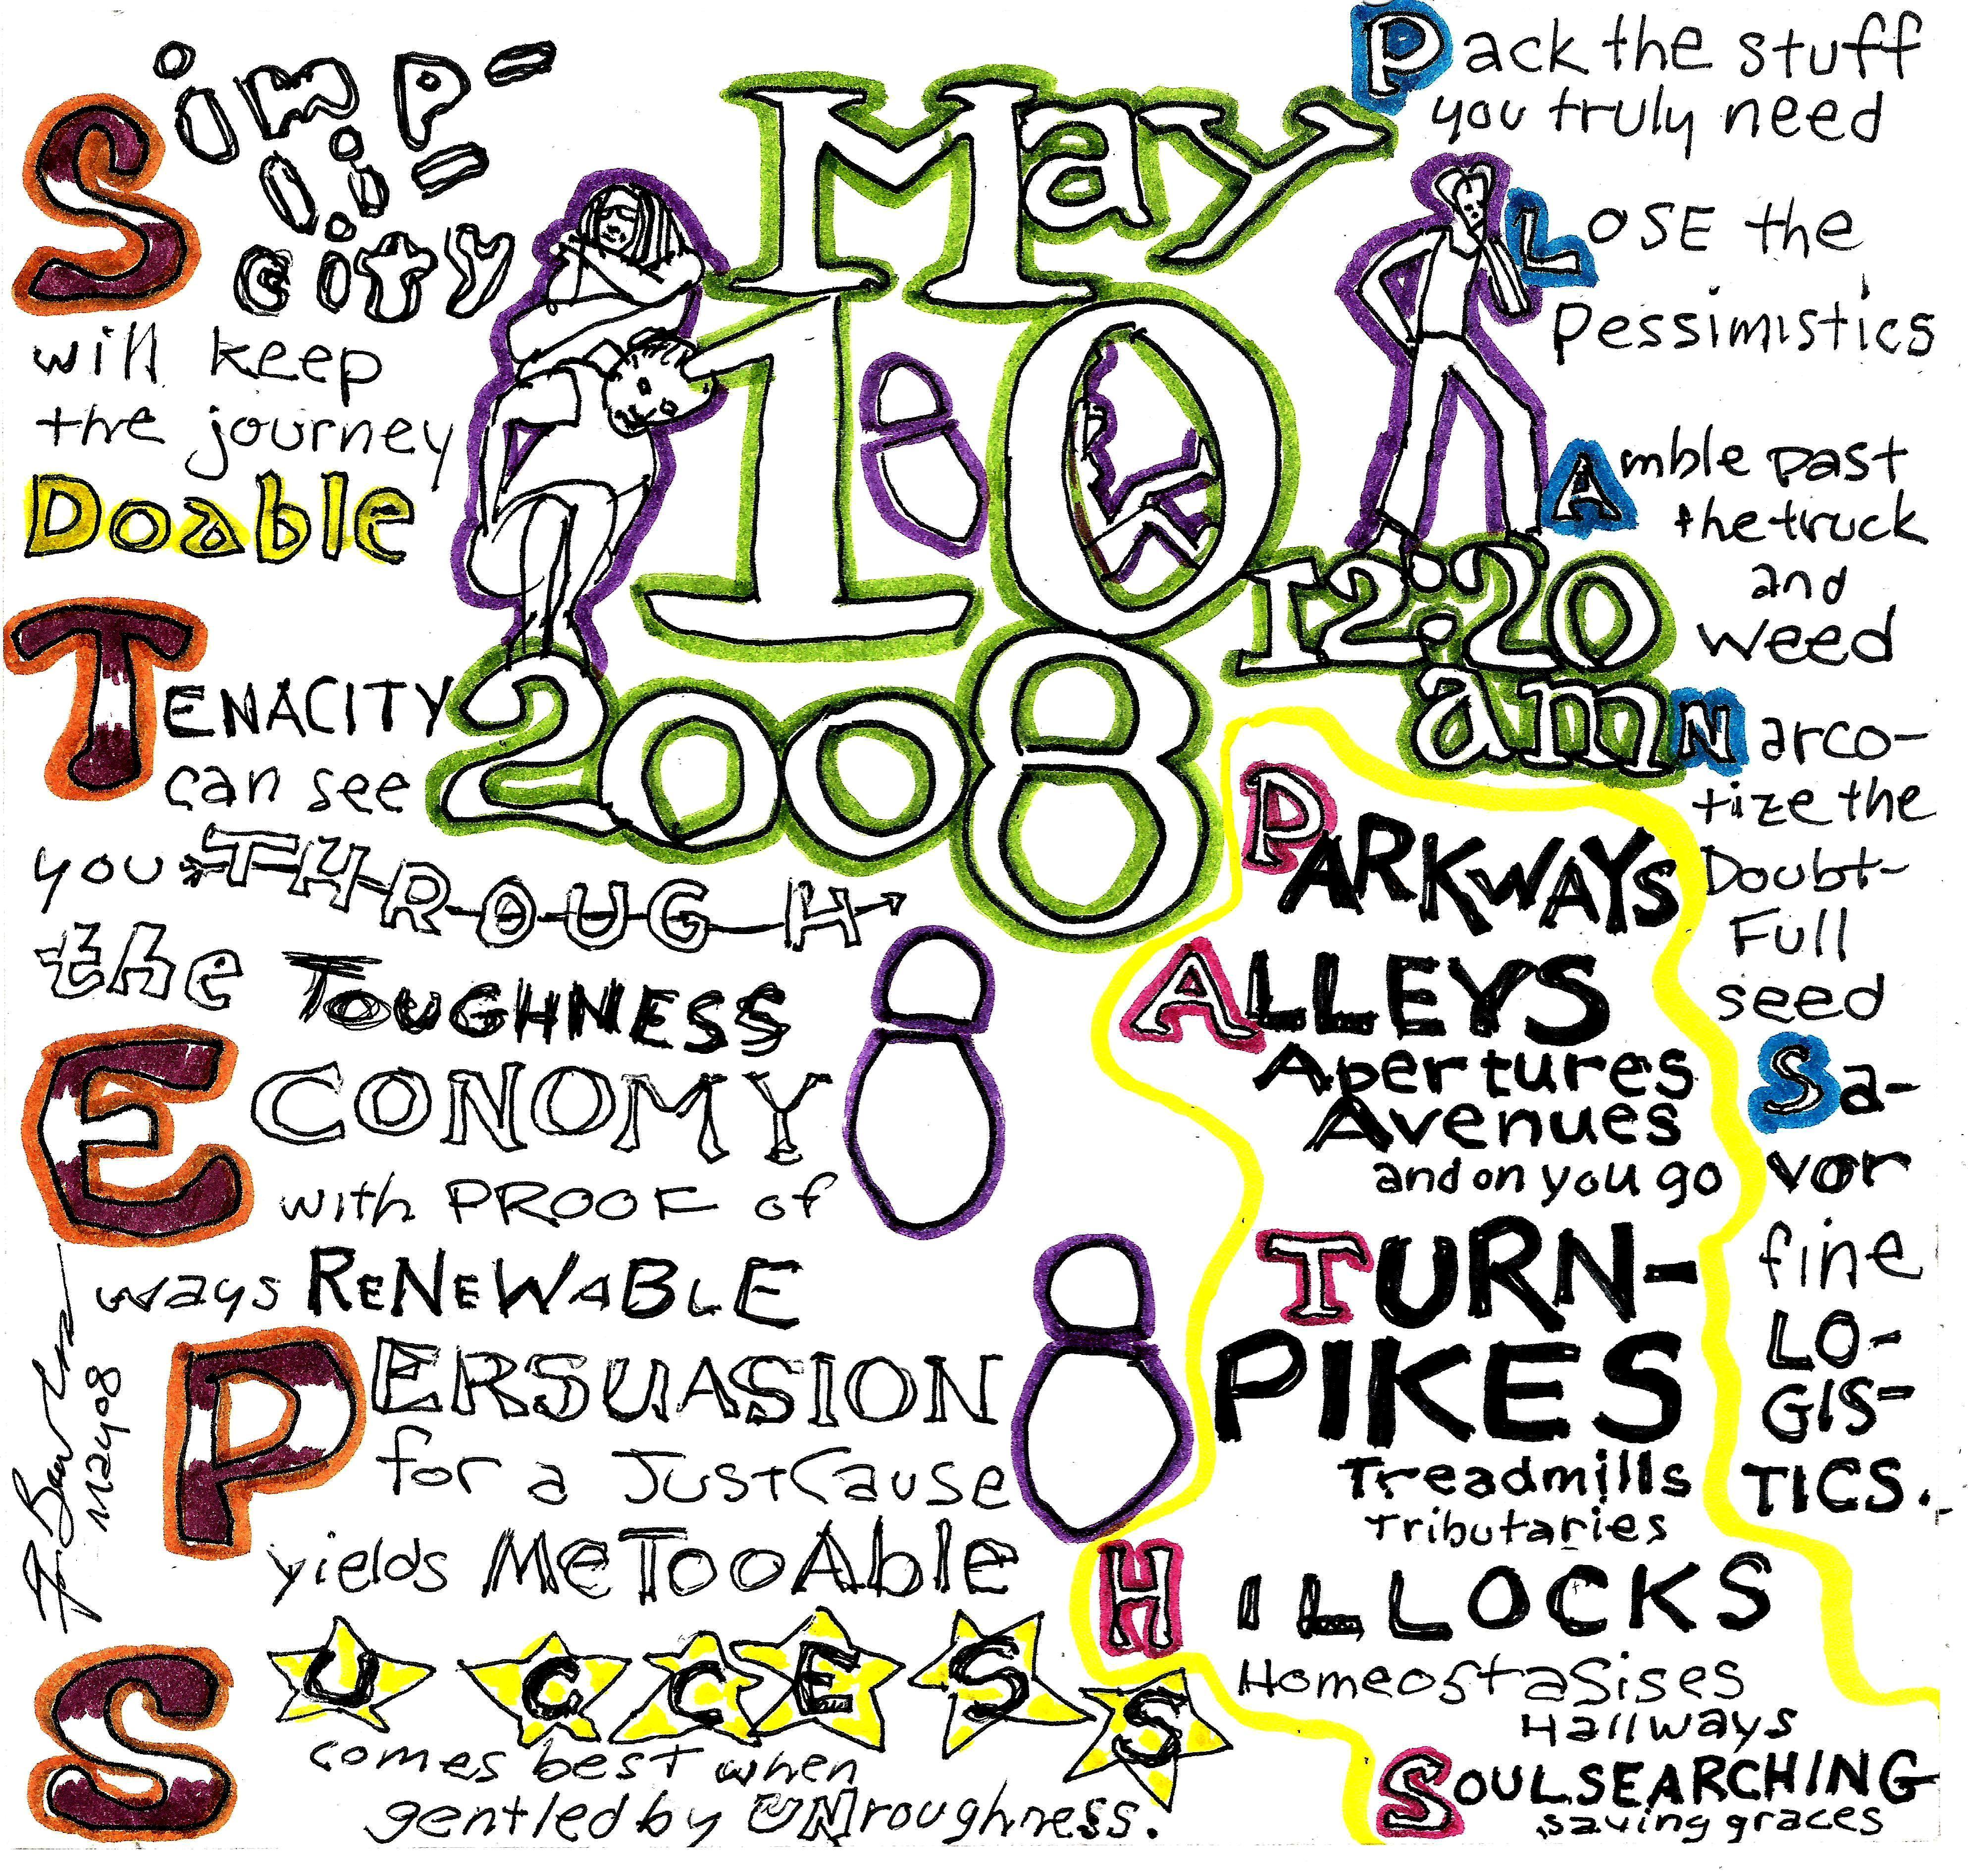 Simp-
li-
city
will keep
the journey
Doable
TENACITY
can see
you THROUGH
the TOUGHNESS
ECONOMY
with PROOF of
ways RENEWABLE
PERSUASION
for a JustCause
yields MeTooAble
SUCCESS
comes best when
gentled by UNroughness.
May 08
May
10
2008
12:20
am
Pack the stuff
you truly need
LOSE the
pessimistics
Amble past
the truck
and
weed
Narco-
tize the
Doubt-
Full
seed
Sa-
vor
fine
LO-
GIS-
TICS.
PARKWAYS
ALLEYS
Apertures
Avenues
and on you go
TURN-
PIKES
Treadmills
Tributaries
HILLOCKS
HomeostaSises
Hallways
SOULSEARCHING
saving graces